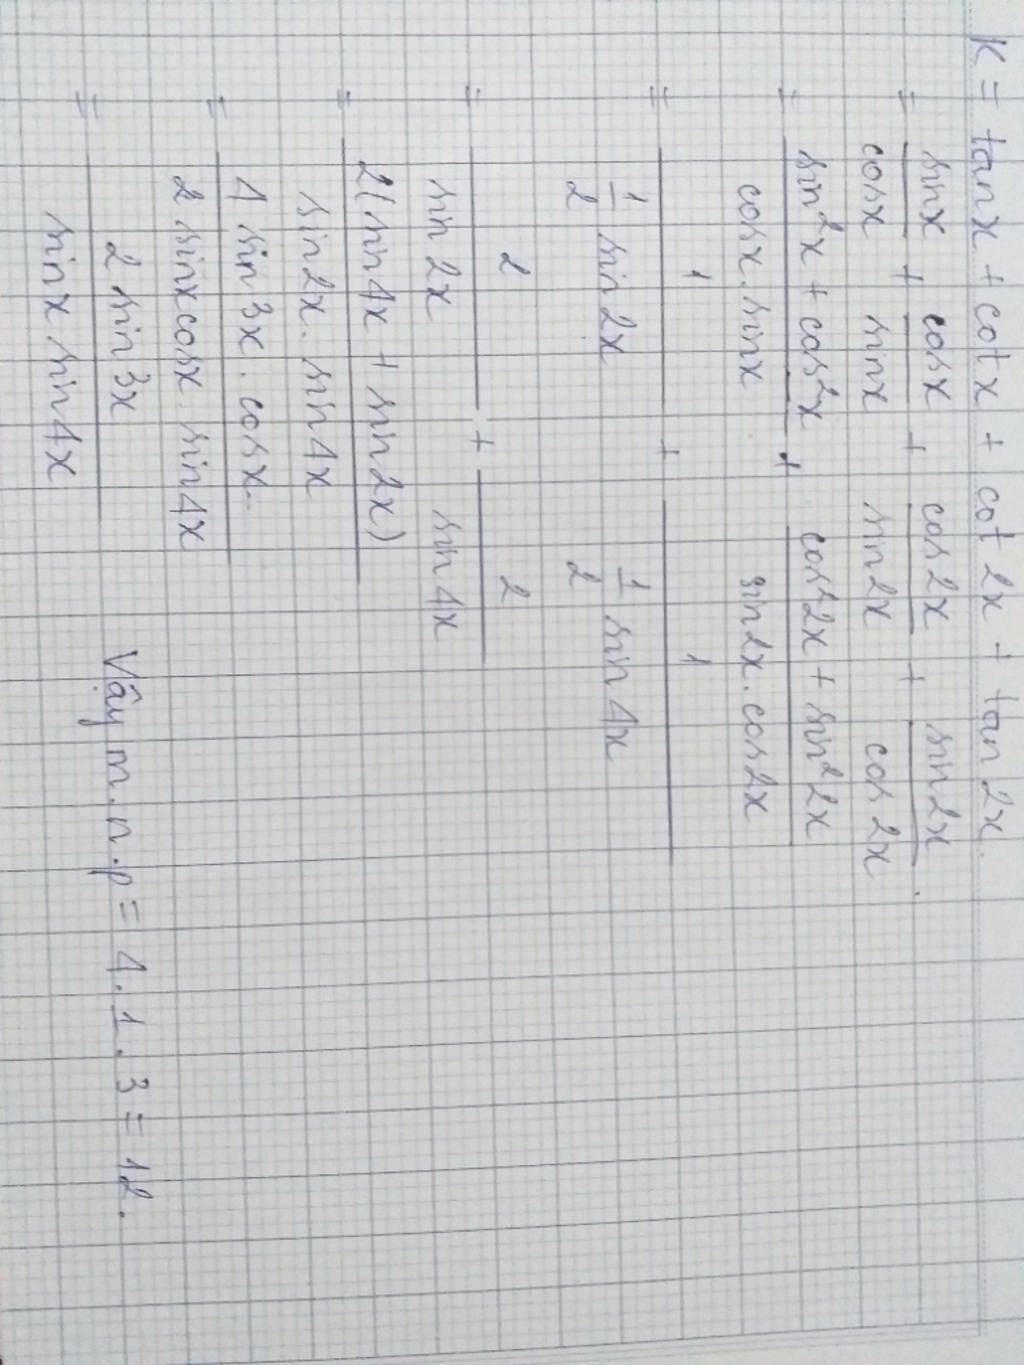 K = tanx + cotx + cot 2x + tan 2x.
= sinx/cosx + cosx/sinx + cos2x/sin2x + sin2x/cos2x.
= (sin²x + cos²x)/(cosx.sinx) + (cos²2x + sin²2x)/(sin2x.cos2x)
= 1/(1/2 sin2x) + 1/(1/2 sin4x)
= 2/sin2x + 2/sin4x
= 2(sin4x + sin2x)/(sin2x.sin4x)
= 4 sin3x.cosx/(2 sinxcosx.sin4x)
= 2 sin3x/(sinx sin4x)
Vậy m.n.p = 4.1.3 = 12.